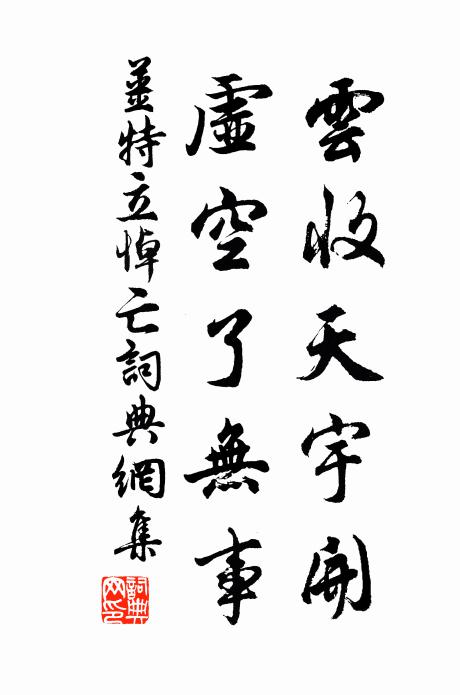 雲收天宇開
虛空了無事
姜特立悼亡詞典網集
詞典網印